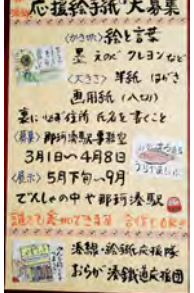 応援絵手紙大募集
〈かき方〉絵と言葉
墨 えのぐ クレヨンなど
〈大きさ〉半紙 はがき
画用紙(八ツ切)
裏に必ず住所 氏名を書くこと
〈募集〉那珂湊駅事務室
3月1日〜4月8日
〈展示〉5月下旬〜9月
でんしゃの中や那珂湊駅
誰でも参加できます 合作もOK
湊線・絵手紙応援隊
おらが湊鐵道応援団